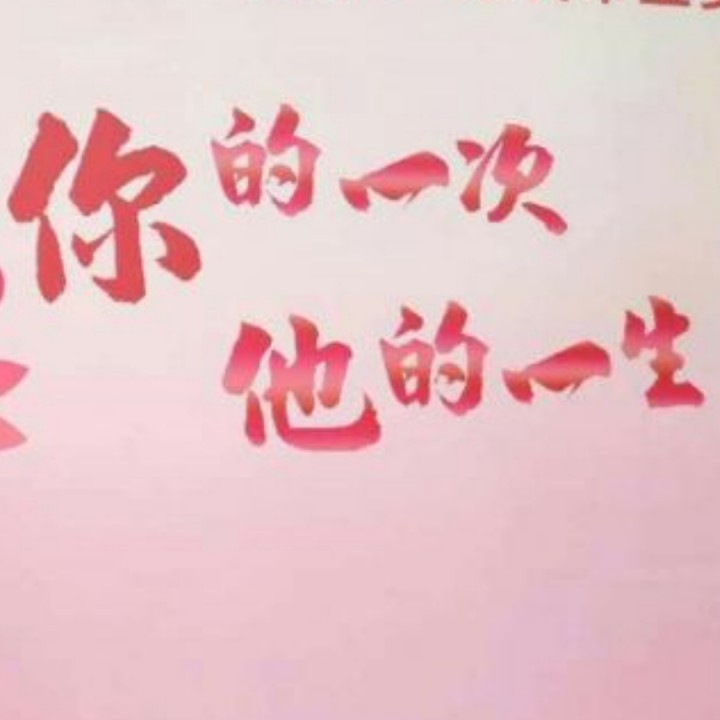 你的一次
他的一生